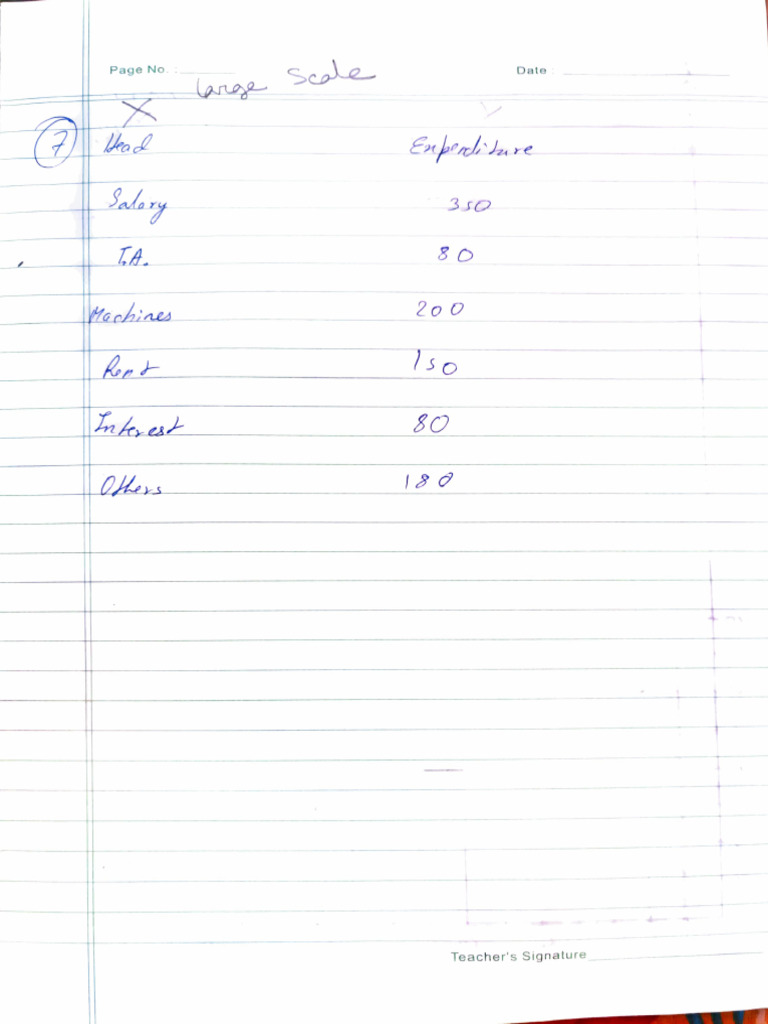 Page No. : Date :
Large Scale
X
7 Head Expenditure
Salary 350
T.A. 80
Machines 200
Rent 150
Interest 80
Others 180
Teacher's Signature